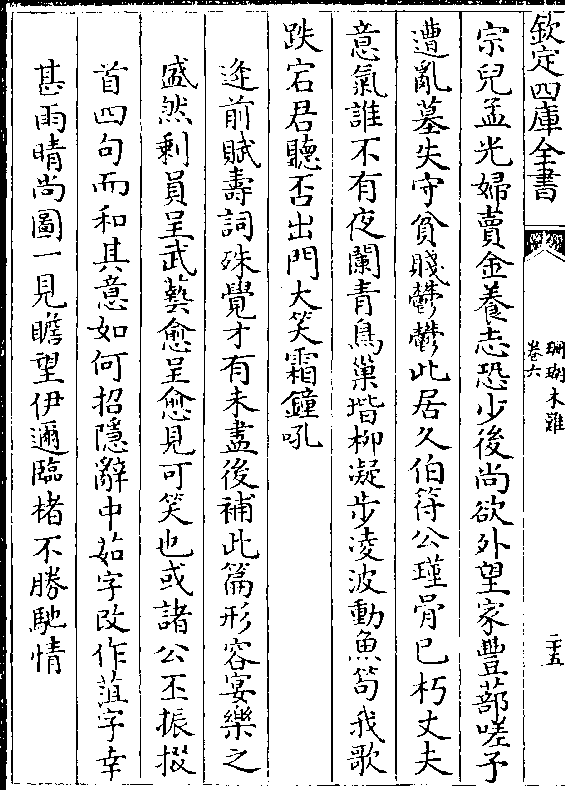 欽定四庫全書
珊瑚木難
卷六
二十五
宗兒孟光婦賣金養志恐少後尚欲外望家豐蔀嗟予
遭亂墓失守貧賤鬱鬱此居久伯符公瑾骨已朽丈夫
意氣誰不有夜闌青鳥巢堦柳凝步凌波動魚笱我歌
跌宕君聽否出門大笑霜鐘吼
逵前賦壽詞殊覺才有未盡後補此篇形容宴樂之
盛然剩員呈武藝愈呈愈見可笑也或諸公丕振掇
首四句而和其意如何招隱辭中茹字改作菹字幸
甚雨晴尚圖一見瞻望伊邇臨楮不勝馳情